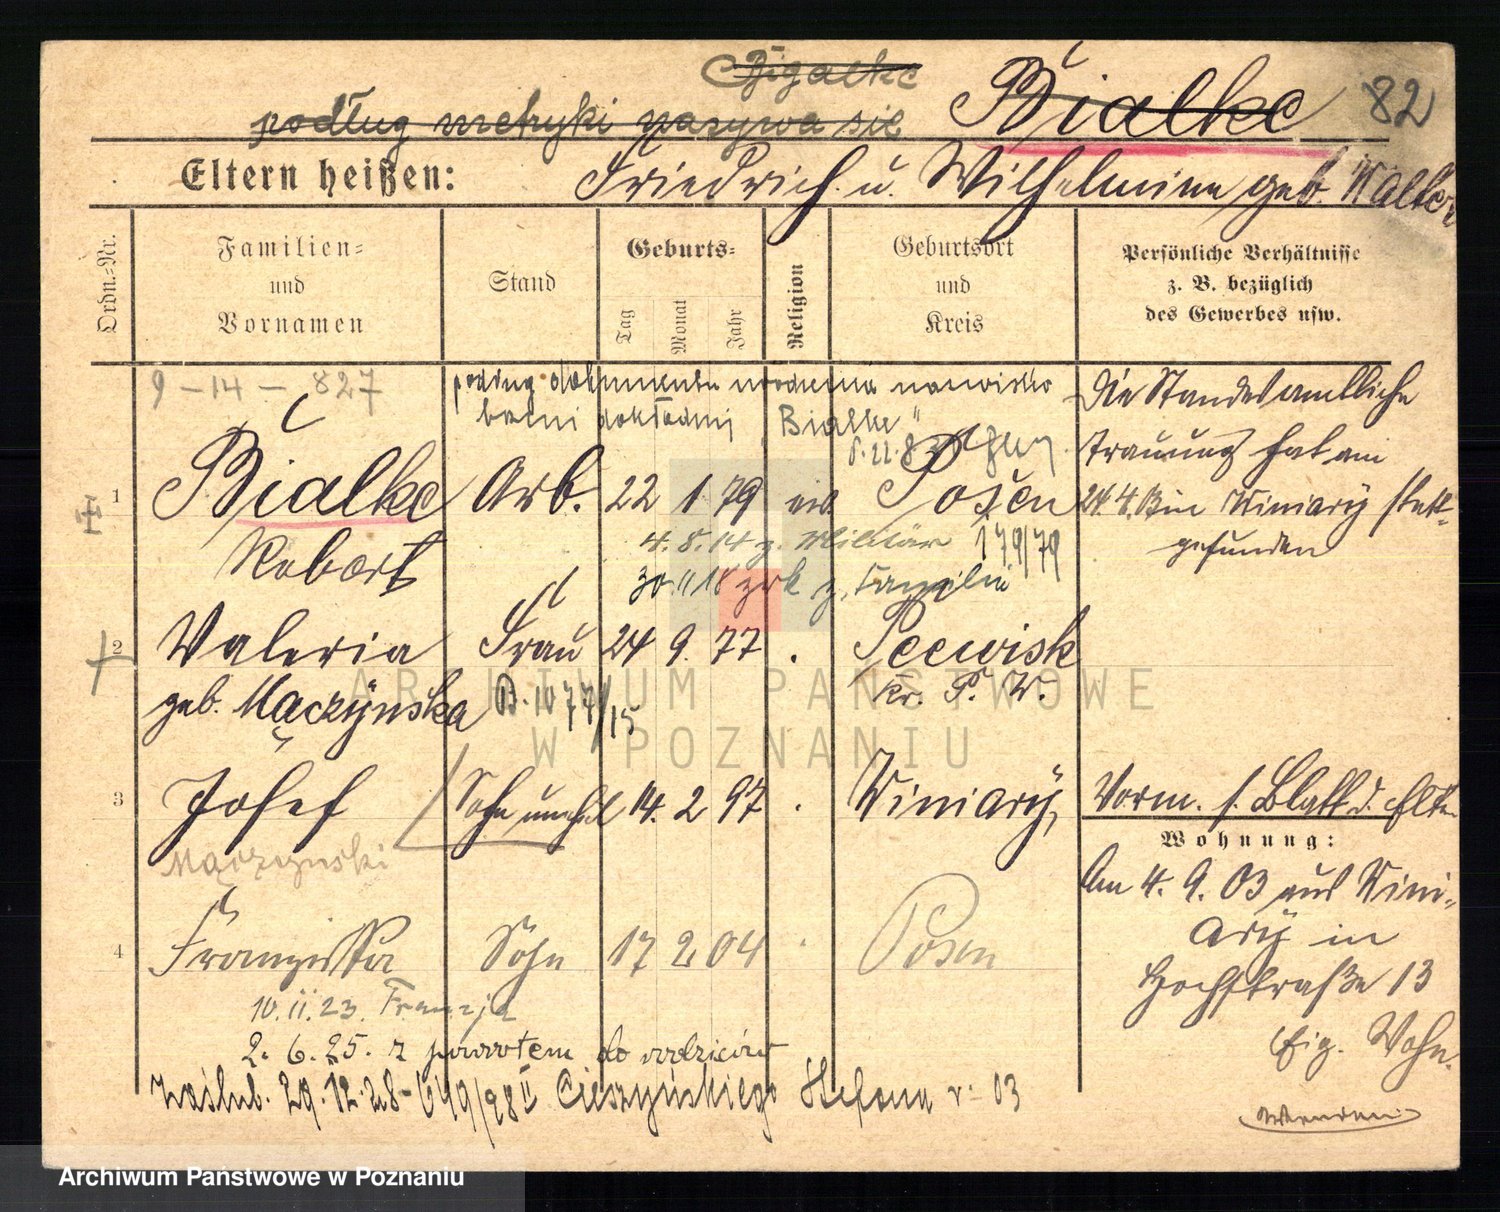 Bigalke
podług metryki nazywa się Bialke 82
Eltern heißen: Friedrich u. Wilhelmine geb. Walter
Ordn.-Nr.
Familien- und Vornamen
Stand
Geburts-
Tag
Monat
Jahr
Religion
Geburtsort und Kreis
Persönliche Verhältnisse
z. B. bezüglich
des Gewerbes usw.
9 - 14 - 827
podług dokumentu urodzenia nazwisko
brzmi dokładnie "Bialke"
Die Standesamtliche
Trauung hat am
24. 4. in Winiary statt-
gefunden
1 Bialke Arb. 22 1 79 Posen
Robert
4. 8. 14 z. Militär 179/79
30 11 18 zrk z.
2 Valeria Frau 24 9. 77 .
geb. Mączyńska
Kr. P. W.
3 Josef Sohn 14. 2 97 . Winiary,
Mączyński
Vorm. s. Blatt d.
Wohnung:
Am 4. 9. 03 aus Wini-
ary in
Hochstraße 13
Eig. Wohn.
4 Franziska Sohn 17 2 04 Posen
10. 11. 23. Francja
2. 6. 25. z powrotem do rodziców
zaślub. 29. 12. 28 - 649/28 II Cieszyńskiego Stefana r. 03
ARCHIWUM PAŃSTWOWE
W POZNANIU
Archiwum Państwowe w Poznaniu